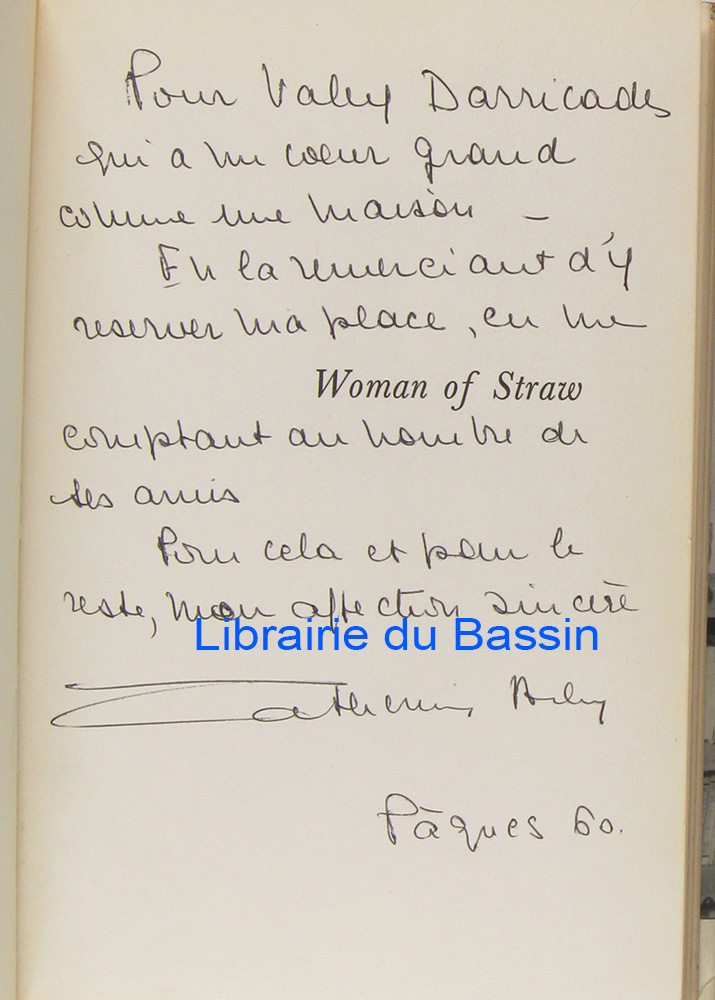 Pour Valey Darricades
qui a un coeur grand
comme une maison –
En la remerciant d'y
reserver ma place, en me
Woman of Straw
comptant au nombre de
ses amis
Pour cela et pour le
reste, mon affection sincère
Librairie du Bassin
Catherine Arley
Pâques 60.